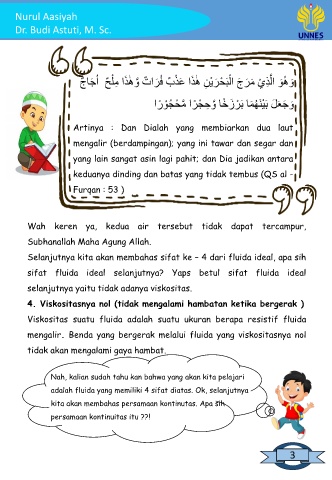 Nurul Aasiyah
Dr. Budi Astuti, M. Sc.
UNNES
وَهُوَ الَّذِيْ مَرَجَ الْبَحْرَيْنِ هٰذَا عَذْبٌ فُرَاتٌ وَّهٰذَا مِلْحٌ اُجَاجٌ
وَجَعَلَ بَيْنَهُمَا بَرْزَخًا وَّحِجْرًا مَّحْجُوْرًا
Artinya : Dan Dialah yang membiarkan dua laut
mengalir (berdampingan); yang ini tawar dan segar dan
yang lain sangat asin lagi pahit; dan Dia jadikan antara
keduanya dinding dan batas yang tidak tembus (QS al -
Furqan : 53 )
Wah keren ya, kedua air tersebut tidak dapat tercampur,
Subhanallah Maha Agung Allah.
Selanjutnya kita akan membahas sifat ke – 4 dari fluida ideal, apa sih
sifat fluida ideal selanjutnya? Yaps betul sifat fluida ideal
selanjutnya yaitu tidak adanya viskositas.
4. Viskositasnya nol (tidak mengalami hambatan ketika bergerak )
Viskositas suatu fluida adalah suatu ukuran berapa resistif fluida
mengalir. Benda yang bergerak melalui fluida yang viskositasnya nol
tidak akan mengalami gaya hambat.
Nah, kalian sudah tahu kan bahwa yang akan kita pelajari
adalah fluida yang memiliki 4 sifat diatas. Ok, selanjutnya
kita akan membahas persamaan kontinutas. Apa sih
persamaan kontinuitas itu ??!
3